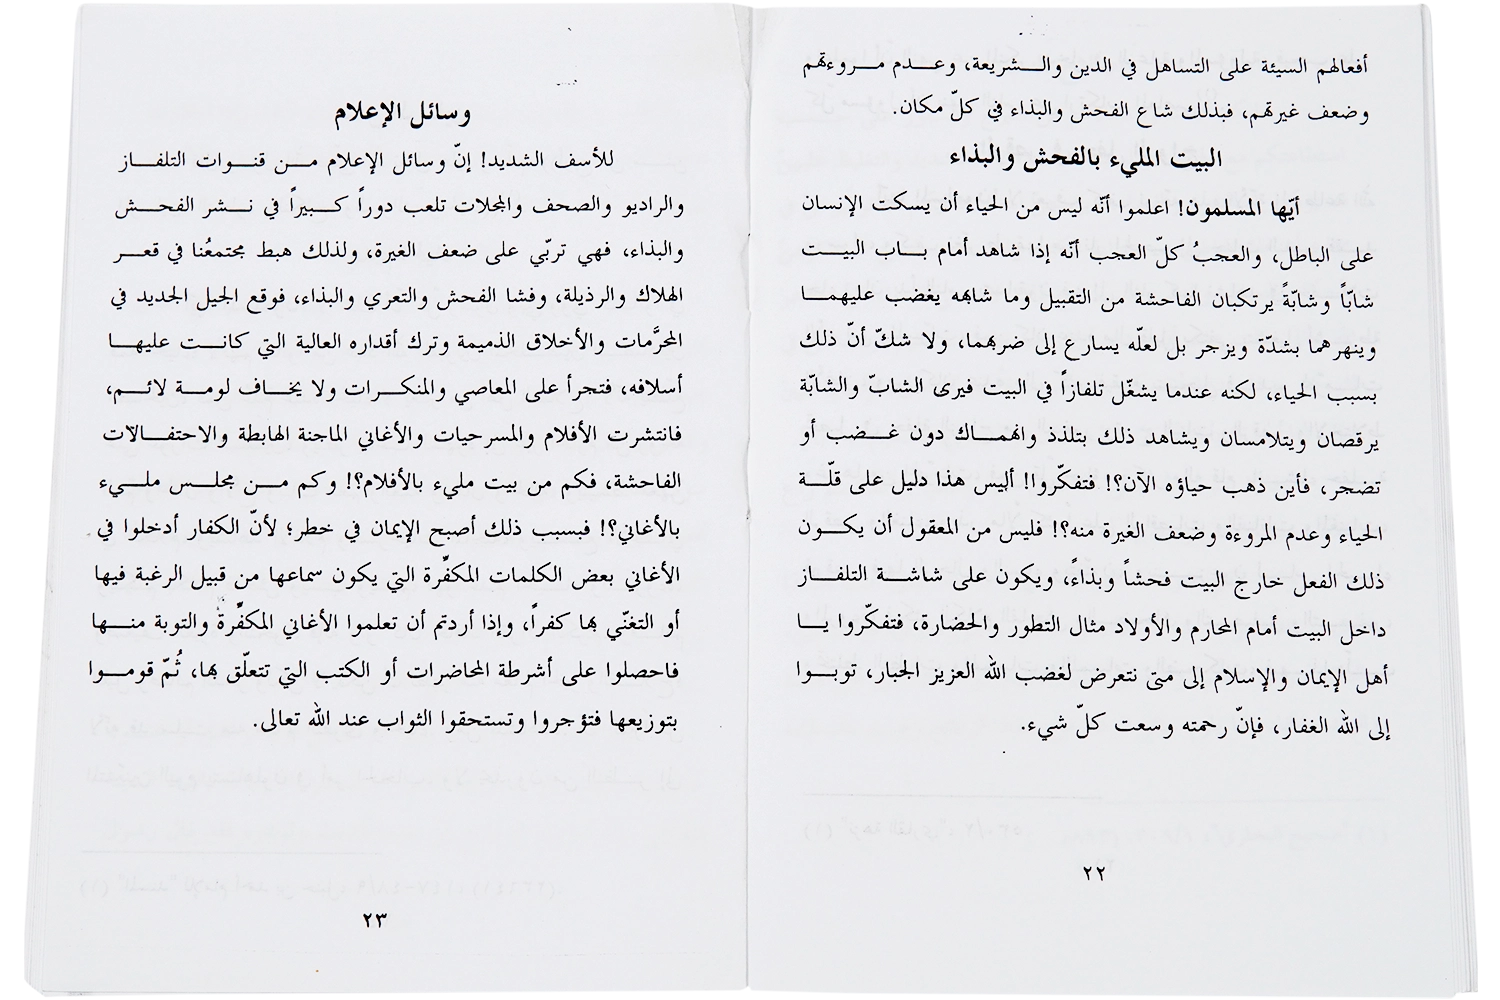 أفعالهم السيئة على التساهل في الدين والشريعة، وعدم مروءتهم
وضعف غيرتهم، فبذلك شاع الفحش والبذاء في كلّ مكان.
البيت المليء بالفحش والبذاء
أيّها المسلمون! اعلموا أنّه ليس من الحياء أن يسكت الإنسان
على الباطل، والعجبُ كلّ العجب أنّه إذا شاهد أمام باب البيت
شابّاً وشابّةً يرتكبان الفاحشة من التقبيل وما شابهه يغضب عليهما
وينهرهما بشدّة ويزجر بل لعلّه يسارع إلى ضربهما، ولا شكّ أنّ ذلك
بسبب الحياء، لكنه عندما يشغّل تلفازاً في البيت فيرى الشابّ والشابّة
يرقصان ويتلامسان ويشاهد ذلك بتلذذ وانهماك دون غضب أو
تضجر، فأين ذهب حياؤه الآن؟! فتفكّروا! أليس هذا دليل على قلّة
الحياء وعدم المروءة وضعف الغيرة منه؟! فليس من المعقول أن يكون
ذلك الفعل خارج البيت فحشاً وبذاءً، ويكون على شاشة التلفاز
داخل البيت أمام المحارم والأولاد مثال التطور والحضارة، فتفكّروا يا
أهل الإيمان والإسلام إلى متى نتعرض لغضب الله العزيز الجبار، توبوا
إلى الله الغفار، فإنّ رحمته وسعت كلّ شيء.
٢٢
وسائل الإعلام
للأسف الشديد! إنّ وسائل الإعلام من قنوات التلفاز
والراديو والصحف والمجلات تلعب دوراً كبيراً في نشر الفحش
والبذاء، فهي تربّي على ضعف الغيرة، ولذلك هبط مجتمعُنا في قعر
الهلاك والرذيلة، وفشا الفحش والتعري والبذاء، فوقع الجيل الجديد في
المحرَّمات والأخلاق الذميمة وترك أقداره العالية التي كانت عليها
أسلافه، فتجرأ على المعاصي والمنكرات ولا يخاف لومة لائم،
فانتشرت الأفلام والمسرحيات والأغاني الماجنة الهابطة والاحتفالات
الفاحشة، فكم من بيت مليء بالأفلام؟! وكم من مجلس مليء
بالأغاني؟! فبسبب ذلك أصبح الإيمان في خطر؛ لأنّ الكفار أدخلوا في
الأغاني بعض الكلمات المكفِّرة التي يكون سماعها من قبيل الرغبة فيها
أو التغنّي بها كفراً، وإذا أردتم أن تعلموا الأغاني المكفِّرة والتوبة منها
فاحصلوا على أشرطة المحاضرات أو الكتب التي تتعلّق بها، ثُمّ قوموا
بتوزيعها فتؤجروا وتستحقوا الثواب عند الله تعالى.
٢٣